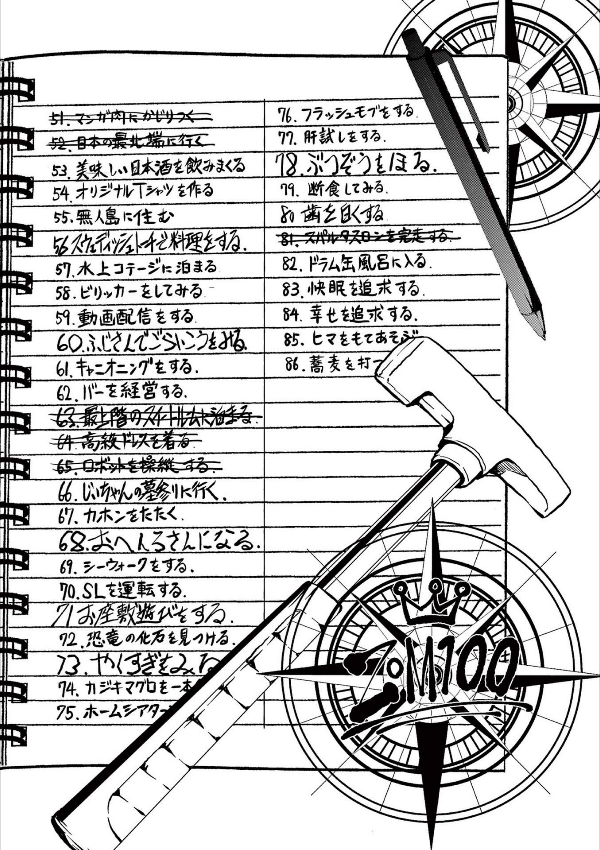 51. マンガ肉にかじりつく
52. 日本の最北端に行く
53. 美味しい日本酒を飲みまくる
54. オリジナルTシャツを作る
55. 無人島に住む
56. スウェディッシュトーチで料理をする.
57. 水上コテージに泊まる
58. ビリッカーをしてみる
59. 動画配信をする.
60. ふじさんでごらいこうをみる.
61. キャニオニングをする.
62. バーを経営する.
63. 最上階のスイートルームに泊まる
64. 高級ドレスを着る
65. ロボットを操縦する.
66. じいちゃんの墓参りに行く.
67. カホンをたたく.
68. おへんろさんになる.
69. シーウォークをする.
70. SLを運転する.
71. お座敷遊びをする.
72. 恐竜の化石を見つける.
73. やくすぎをみる
74. カジキマグロを一本
75. ホームシアター
76. フラッシュモブをする.
77. 肝試しをする.
78. ぶつぞうをほる.
79. 断食してみる.
80 歯を白くする
81. スパルタスロンを完走する.
82. ドラム缶風呂に入る.
83. 快眠を追求する.
84. 幸せを追求する.
85. ヒマをもてあそぶ
86. 蕎麦を打つ
ゾM100